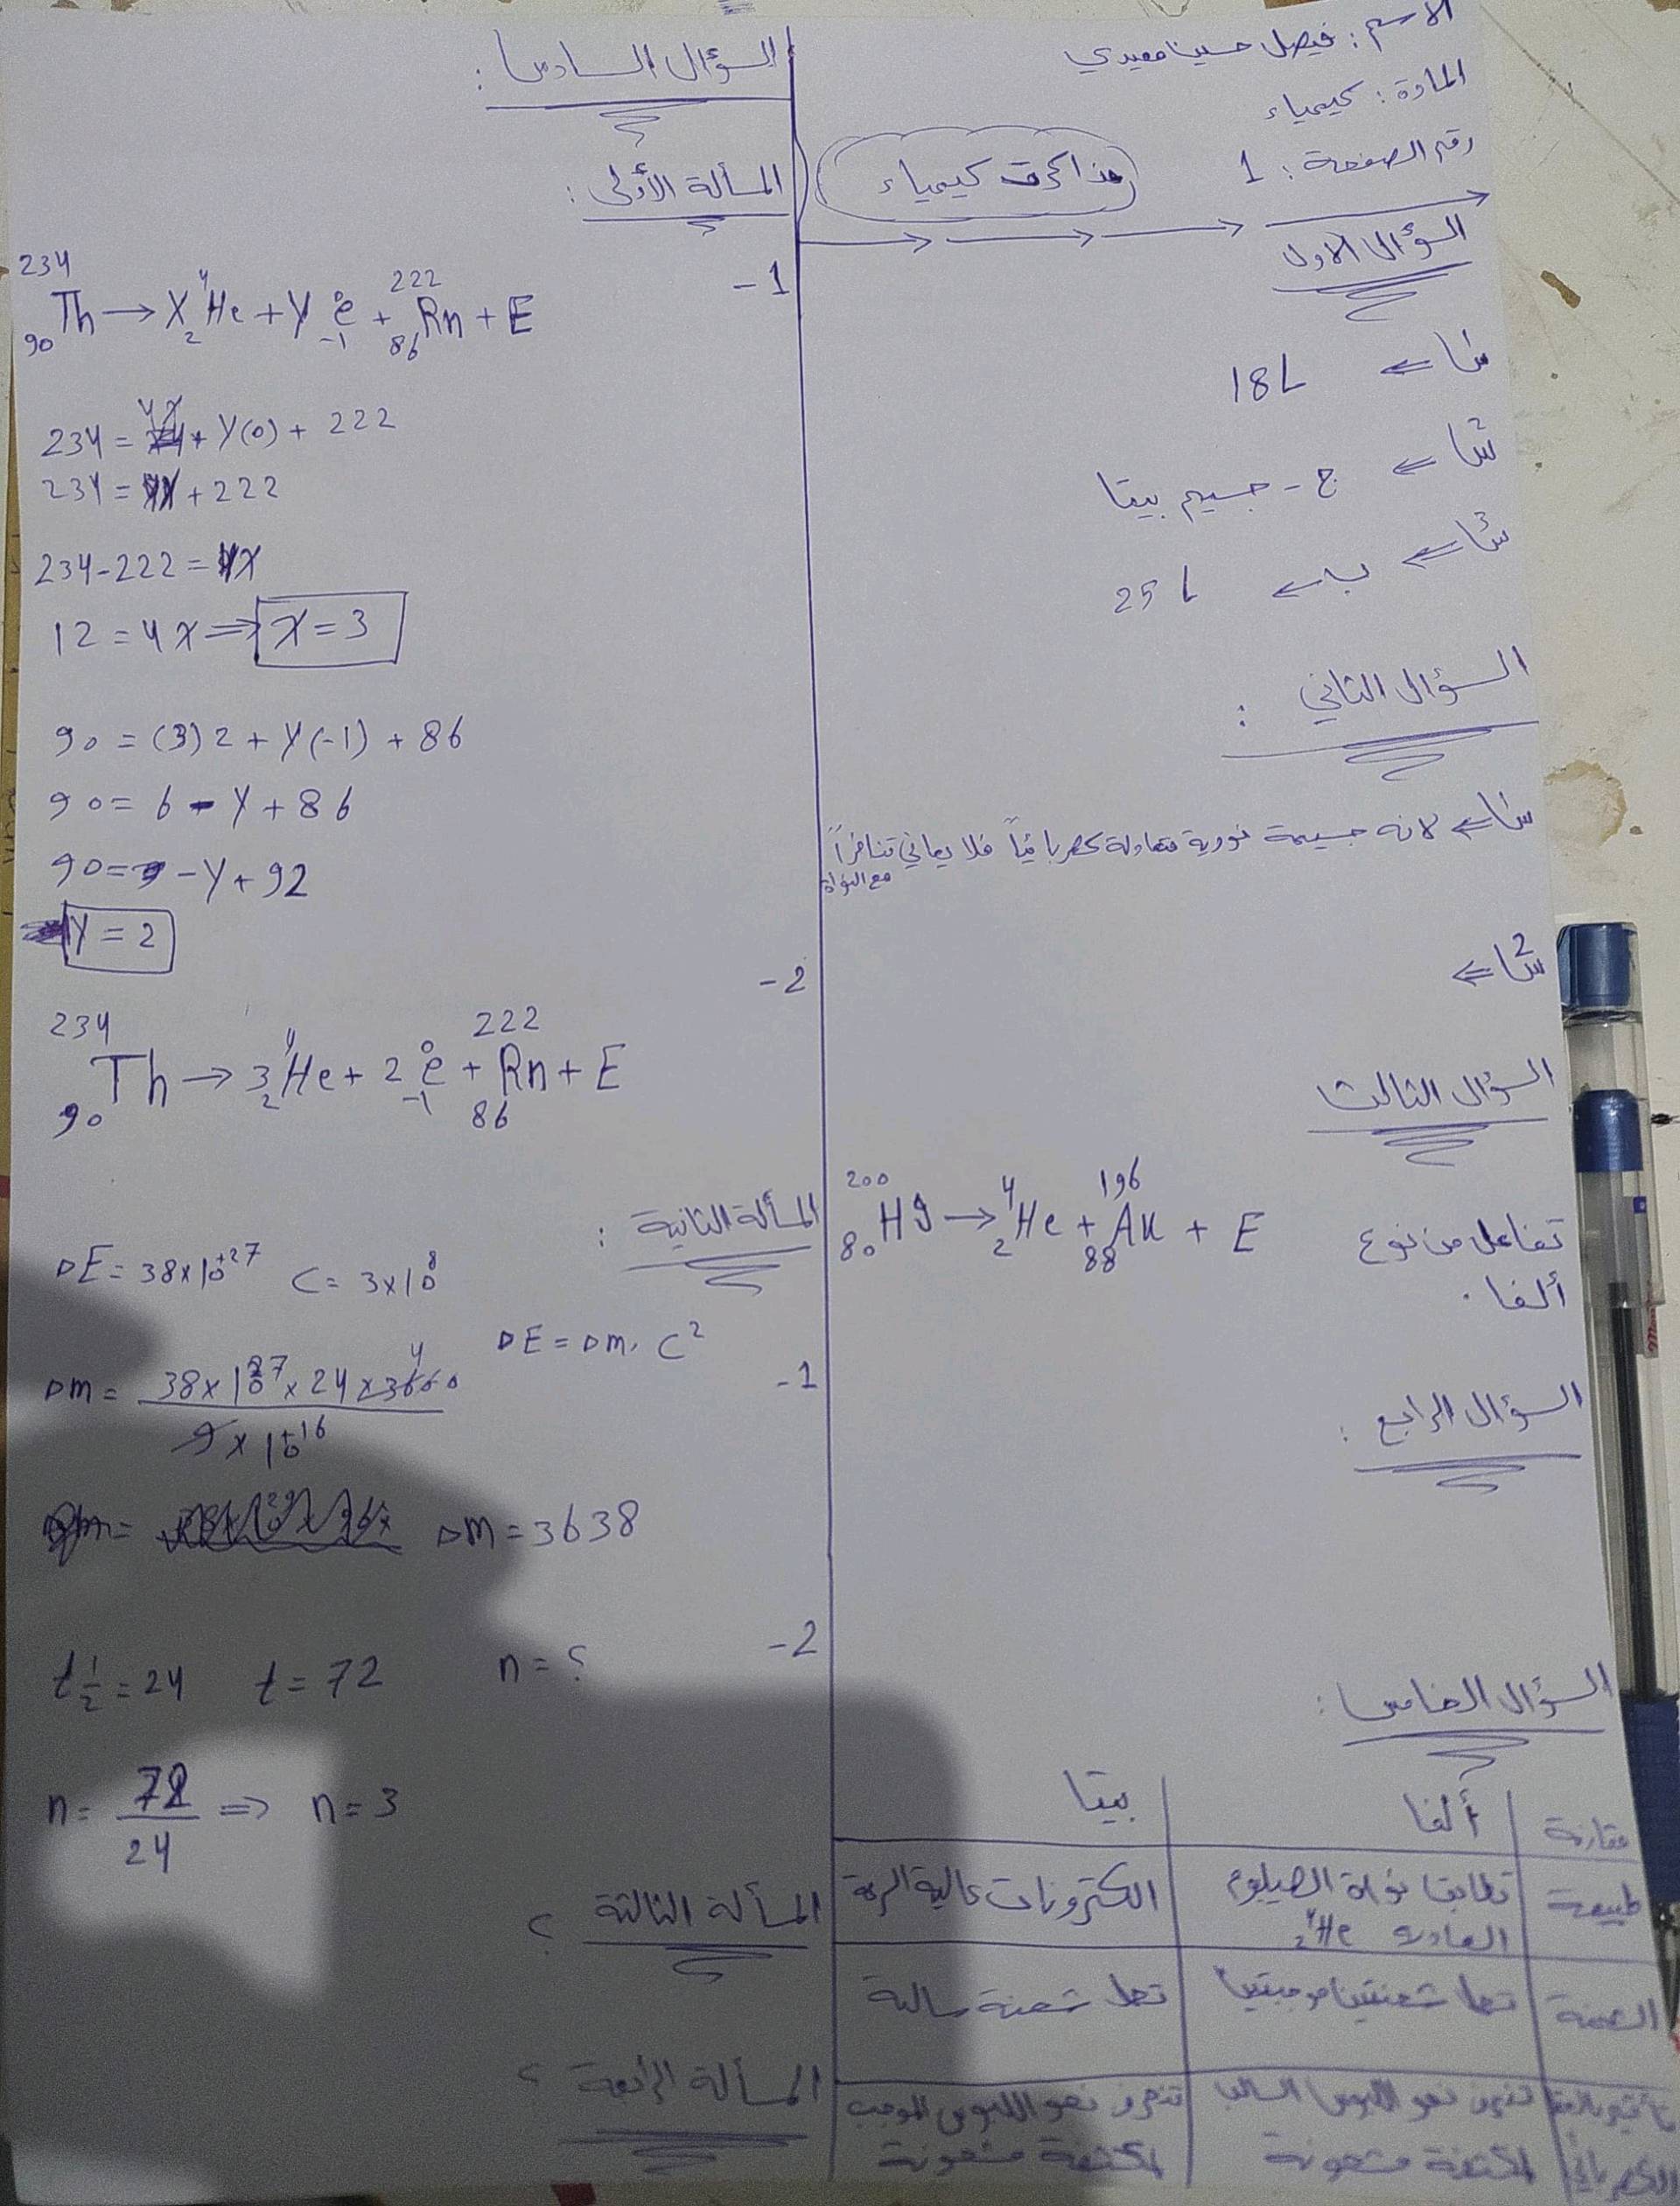 الاسم: فيصل حسين معيدي
المادة: كيمياء
رقم الصفحة: 1
مذاكرة كيمياء
السؤال الاول
س1 ⇐ 18L
س2 ⇐ ج - جسيم بيتا
س3 ⇐ ب ← 25 L
السؤال الثاني:
س1 ⇐ لانه جسيمة نووية معتدلة كهربائياً فلا يعاني تنافراً
مع النواة
س2 ⇐
السؤال الثالث
تفاعل من نوع
ألفا.
200 80 Hg → 4 2 He + 196 88 Au + E
السؤال الرابع:
السؤال الخامس:
مقارنة ألفا بيتا
طبيعة تطابق نواة الهيليوم الكترونات عالية السرعة
4 2 He
الشحنة تحمل شحنتين موجبتين تحمل شحنة سالبة
تنحرف نحو اللبوس السالب تنحرف نحو اللبوس الموجب
لمكثفة مشحونة لمكثفة مشحونة
السؤال السادس:
المسألة الأولى:
-1
234 90 Th → X 4 2 He + Y 0 -1 e + 222 86 Rn + E
234 = 4x + Y(0) + 222
234 = 4x + 222
234 - 222 = 4x
12 = 4x ⇒ x = 3
90 = (3)2 + Y(-1) + 86
90 = 6 - Y + 86
90 = -Y + 92
Y = 2
-2
234 90 Th → 3 4 2 He + 2 0 -1 e + 222 86 Rn + E
المسألة الثانية:
ΔE = 38×10+27 C = 3×10 8
-1
ΔE = Δm. C²
Δm = 38×10 27 × 24 × 3600 4
9 × 10+16
Δm = 3638
-2
t 1/2 = 24 t = 72 n = ؟
n = 72/24 ⇒ n = 3
المسألة الثالثة ؟
المسألة الرابعة ؟